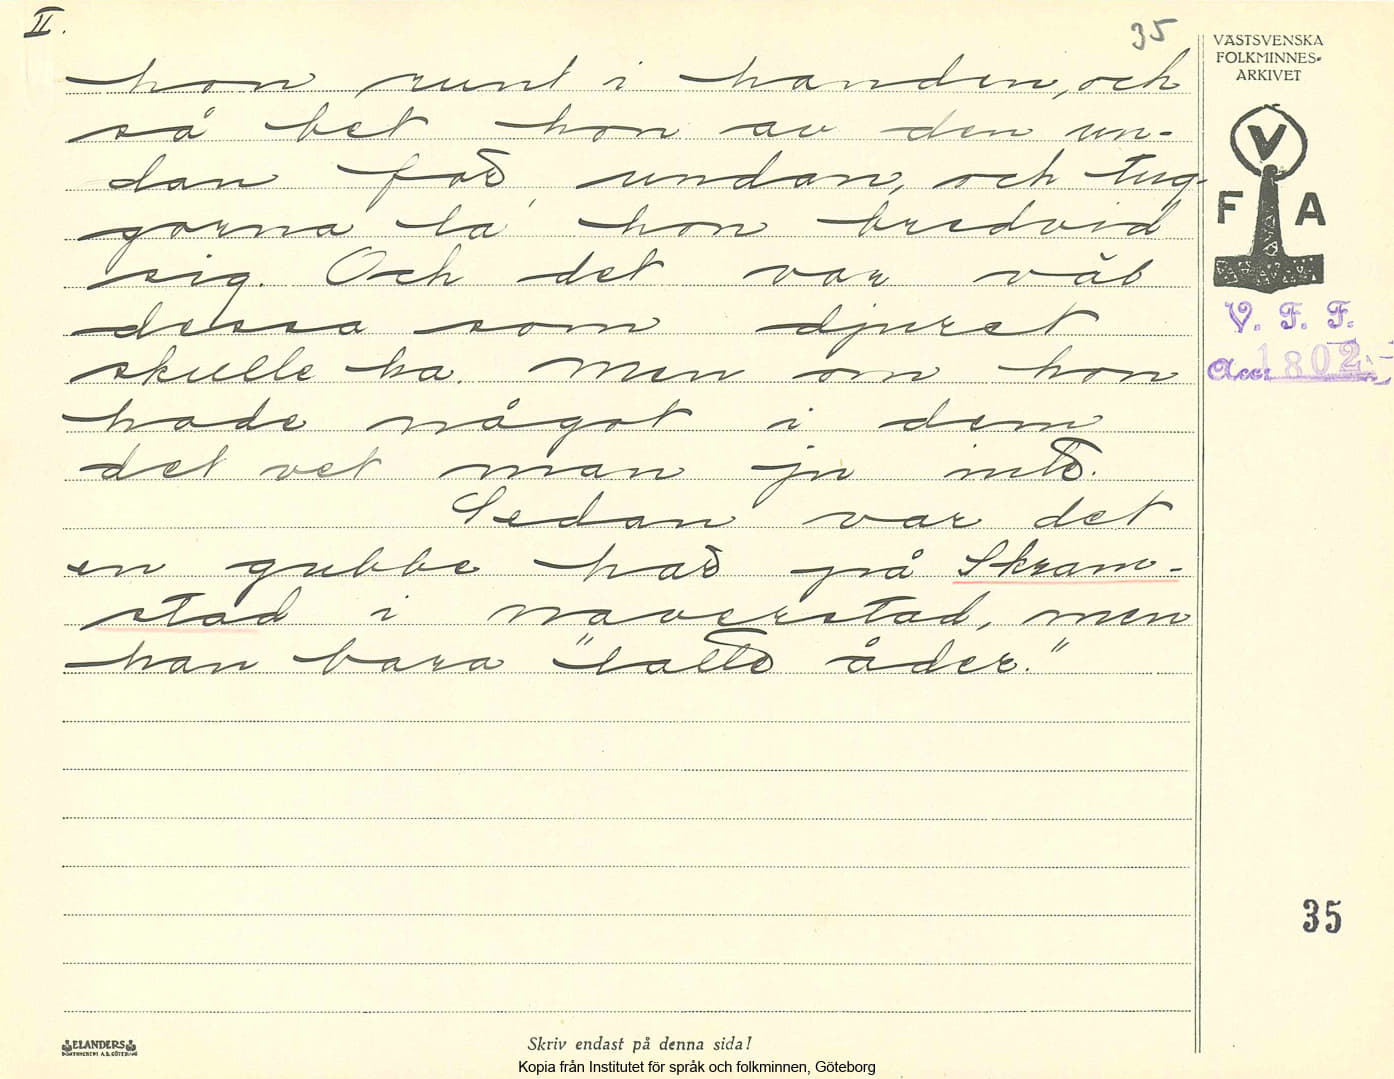 II.
35
VÄSTSVENSKA
FOLKMINNES-
ARKIVET
V
F A
V. F. F.
Acc: 1802
hon runt i handen, och
så bet hon av den un-
dan for undan, och tug-
gorna la hon bredvid
sig. Och det var väl
dessa som djuret
skulle ha. Men om hon
hade något i dem
det vet man ju inte.
Sedan var det
en gubbe har på Skram-
stad i naverstad, men
han bara "lätte åder."
35
ELANDERS
BOKTRYCKERI A.B. GÖTEBORG
Skriv endast på denna sida!
Kopia från Institutet för språk och folkminnen, Göteborg